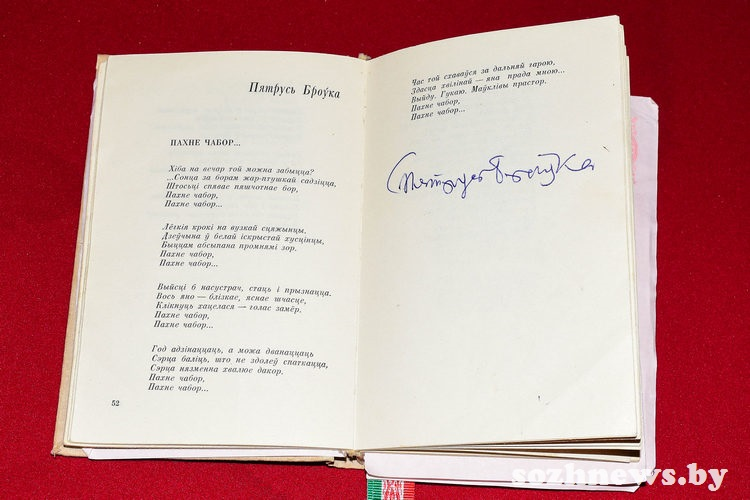 Пятрусь Броўка
ПАХНЕ ЧАБОР...
Хіба на вечар той можна забыцца?
...Сонца за борам жар-птушкай садзіцца,
Штосьці спявае пяшчотнае бор,
Пахне чабор,
Пахне чабор...
Лёгкія крокі на вузкай сцяжынцы,
Дзеўчына ў белай іскрыстай хусцінцы,
Быццам абсыпана промнямі зор.
Пахне чабор,
Пахне чабор...
Выйсці б насустрач, стаць і прызнацца.
Вось яно — блізкае, яснае шчасце,
Клікнуць хацелася — голас замёр.
Пахне чабор,
Пахне чабор...
Год адзінаццаць, а можа дванаццаць
Сэрца баліць, што не здолеў спаткацца,
Сэрца нязменна хвалюе дакор.
Пахне чабор,
Пахне чабор...
52
Час той схаваўся за дальняй гарою,
Здасца хвілінай — яна прада мною...
Выйду. Гукаю. Маўклівы прастор,
Пахне чабор,
Пахне чабор...
Пятрусь Броўка
sozhnews.by